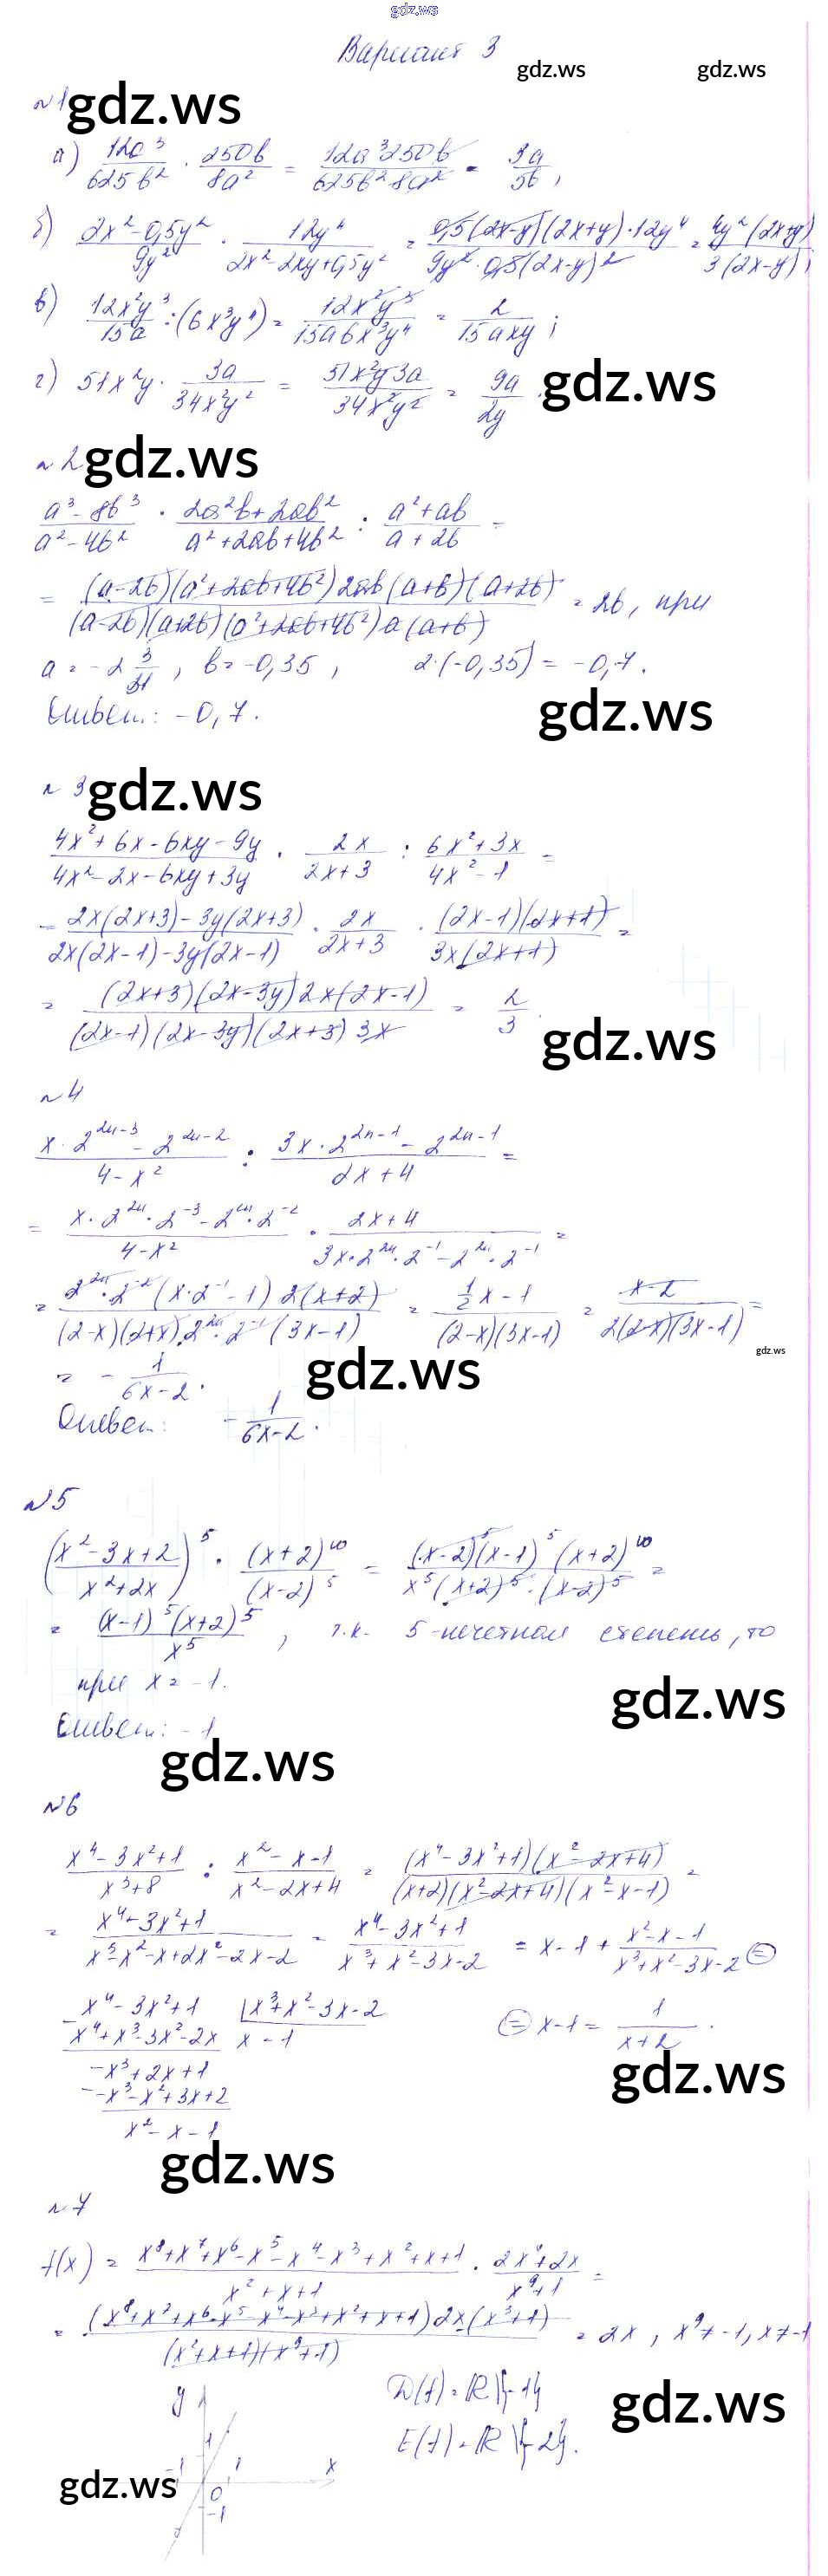 gdz.ws
Вариант 3
gdz.ws gdz.ws
№1 gdz.ws
а) 12a³/625b² · 250b/8a² = 12a³250b/625b²8a² = 3a/5b,
б) 2x²-0,5y²/9y² · 12y⁴/2x²-2xy+0,5y² = 0,5(2x-y)(2x+y)·12y⁴/9y²·0,5(2x-y)² = 4y²(2x+y)/3(2x-y);
в) 12x²y³/15a : (6x³y⁴) = 12x²y³/15a6x³y⁴ = 2/15axy;
г) 51x²y · 3a/34x²y² = 51x²y3a/34x²y² = 9a/2y.
gdz.ws
№2 gdz.ws
a³-8b³/a²-4b² · 2a²b+2ab²/a²+2ab+4b² : a²+ab/a+2b =
= (a-2b)(a²+2ab+4b²)2ab(a+b)(a+2b)/(a-2b)(a+2b)(a²+2ab+4b²)a(a+b) = 2b, при
a = -2 3/31, b = -0,35, 2·(-0,35) = -0,7.
Ответ: -0,7.
gdz.ws
№3 gdz.ws
4x²+6x-6xy-9y/4x²-2x-6xy+3y · 2x/2x+3 : 6x²+3x/4x²-1 =
= 2x(2x+3)-3y(2x+3)/2x(2x-1)-3y(2x-1) · 2x/2x+3 · (2x-1)(2x+1)/3x(2x+1) =
= (2x+3)(2x-3y)2x(2x-1)/(2x-1)(2x-3y)(2x+3)3x = 2/3.
gdz.ws
№4
x·2²ⁿ⁻³-2²ⁿ⁻²/4-x² : 3x·2²ⁿ⁻¹-2²ⁿ⁻¹/2x+4 =
= x·2²ⁿ·2⁻³-2²ⁿ·2⁻²/4-x² · 2x+4/3x·2²ⁿ·2⁻¹-2²ⁿ·2⁻¹ =
= 2²ⁿ·2⁻²(x·2⁻¹-1)2(x+2)/(2-x)(2+x)·2²ⁿ·2⁻¹(3x-1) = ½x-1/(2-x)(3x-1) = x-2/2(2-x)(3x-1) =
gdz.ws
= -1/6x-2.
gdz.ws
Ответ: -1/6x-2.
№5
(x²-3x+2/x²+2x)⁵ · (x+2)¹⁰/(x-2)⁵ = (x-2)⁵(x-1)⁵(x+2)¹⁰/x⁵(x+2)⁵·(x-2)⁵ =
= (x-1)⁵(x+2)⁵/x⁵, т.к. 5-нечетная степень, то
при x = -1.
gdz.ws
Ответ: -1
gdz.ws
№6
x⁴-3x²+1/x³+8 : x²-x-1/x²-2x+4 = (x⁴-3x²+1)(x²-2x+4)/(x+2)(x²-2x+4)(x²-x-1) =
= x⁴-3x²+1/x³-x²-x+2x²-2x-2 = x⁴-3x²+1/x³+x²-3x-2 = x-1+x²-x-1/x³+x²-3x-2 =
x⁴-3x²+1 x³+x²-3x-2 = x-1= 1/x+2.
x⁴+x³-3x²-2x x-1
-x³+2x+1
gdz.ws
-x³-x²+3x+2
x²-x-1
gdz.ws
№7
f(x) = x⁸+x⁷+x⁶-x⁵-x⁴-x³+x²+x+1/x²+x+1 · 2x⁴+2x/x⁹+1 =
= (x⁸+x⁷+x⁶-x⁵-x⁴-x³+x²+x+1)2x(x³+1)/(x²+x+1)(x⁹+1) = 2x, x⁹≠-1, x≠-1
y D(f) = R\{-1}
gdz.ws
1 E(f) = R\{-2}.
-1 1 x
gdz.ws 0
-1